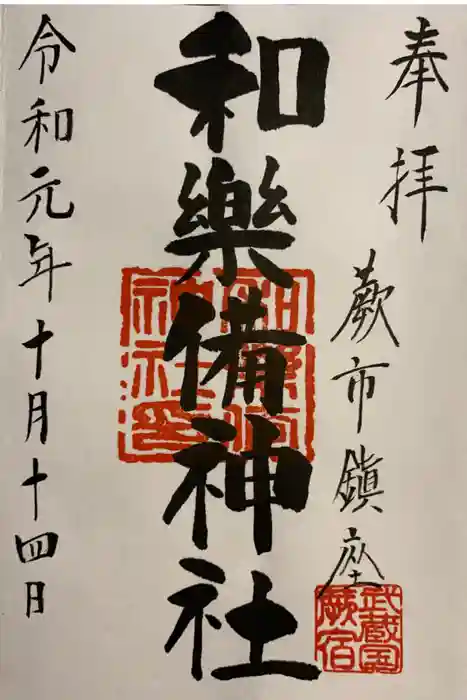 奉拝
蕨市鎮座
武蔵国
蕨宿
和樂備神社
和樂備
神社印
令和元年十月十四日